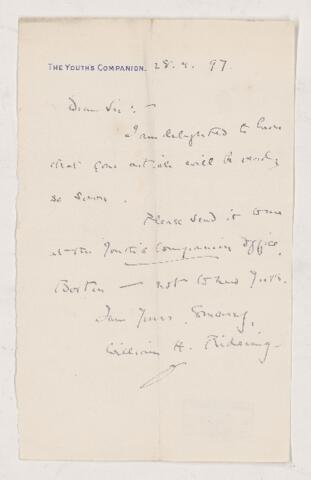 THE YOUTH'S COMPANION. 28. 4. 97.
Dear Sir:—
I am delighted to know
that your article will be ready
so soon.
Please send it to me
at the Youth's Companion Office,
Boston — not to New York.
I am Yours Sincerely,
William H. Rideing